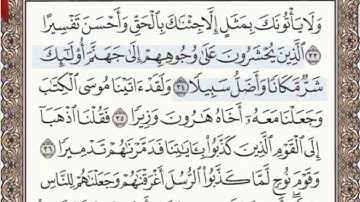 وَلَا يَأْتُونَكَ بِمَثَلٍ إِلَّا جِئْنَٰكَ بِٱلْحَقِّ وَأَحْسَنَ تَفْسِيرًا
٣٣ ٱلَّذِينَ يُحْشَرُونَ عَلَىٰ وُجُوهِهِمْ إِلَىٰ جَهَنَّمَ أُو۟لَٰٓئِكَ
شَرٌّ مَّكَانًا وَأَضَلُّ سَبِيلًا ٣٤ وَلَقَدْ ءَاتَيْنَا مُوسَى ٱلْكِتَٰبَ
وَجَعَلْنَا مَعَهُۥٓ أَخَاهُ هَٰرُونَ وَزِيرًا ٣٥ فَقُلْنَا ٱذْهَبَآ
إِلَى ٱلْقَوْمِ ٱلَّذِينَ كَذَّبُوا۟ بِـَٔايَٰتِنَا فَدَمَّرْنَٰهُمْ تَدْمِيرًا
٣٦ وَقَوْمَ نُوحٍ لَّمَّا كَذَّبُوا۟ ٱلرُّسُلَ أَغْرَقْنَٰهُمْ وَجَعَلْنَٰهُمْ لِلنَّاسِ